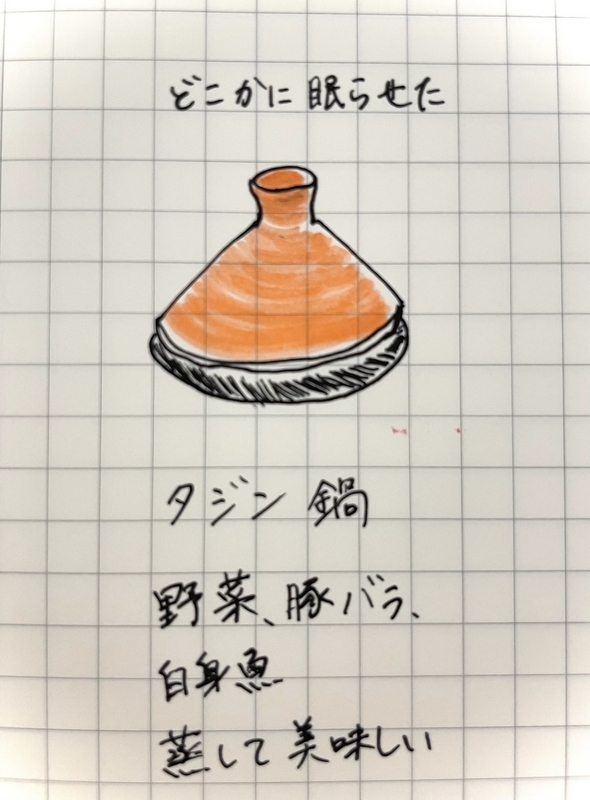 どこかに眠らせた
タジン鍋
野菜、豚バラ、
白身魚
蒸して美味しい